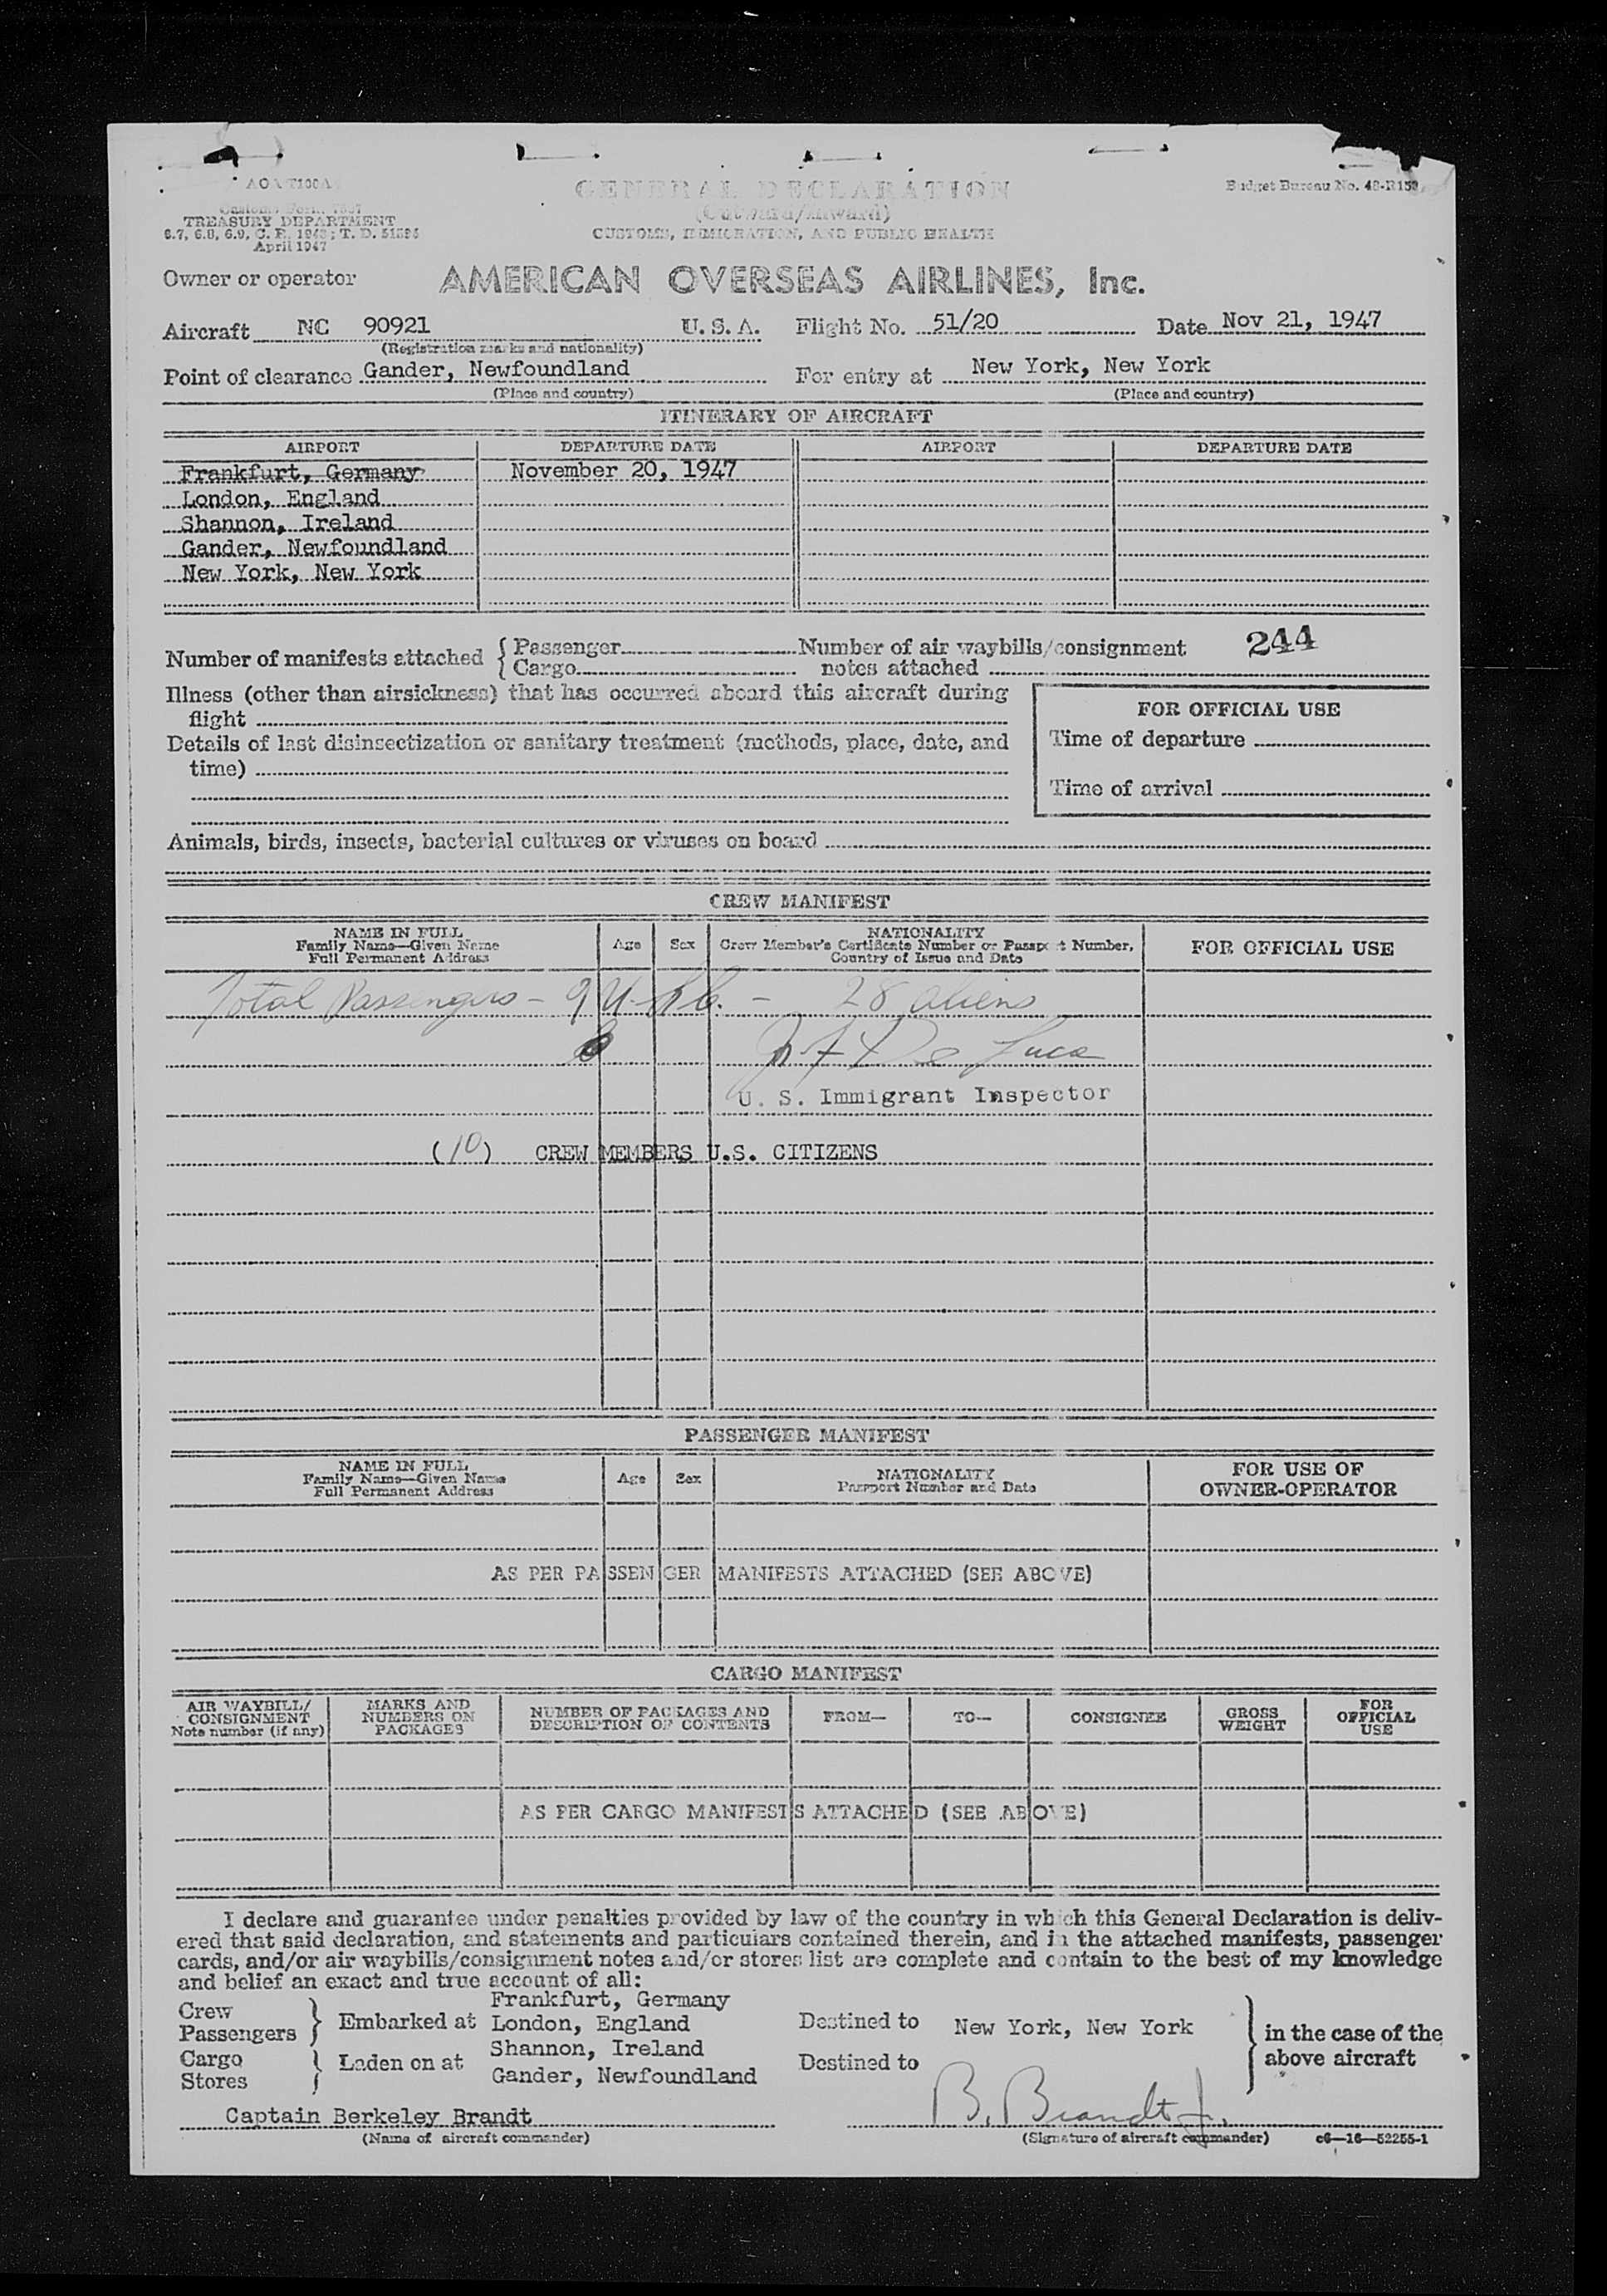 AOA T100A
Customs Form 7507
TREASURY DEPARTMENT
6.7, 6.8, 6.9, C. R. 1943; T. D. 51595
April 1947
GENERAL DECLARATION
(Outward/Inward)
CUSTOMS, IMMIGRATION, AND PUBLIC HEALTH
Budget Bureau No. 48-R159
Owner or operator AMERICAN OVERSEAS AIRLINES, Inc.
Aircraft NC 90921 U. S. A. Flight No. 51/20 Date Nov 21, 1947
(Registration marks and nationality)
Point of clearance Gander, Newfoundland For entry at New York, New York
(Place and country) (Place and country)
ITINERARY OF AIRCRAFT
AIRPORT DEPARTURE DATE AIRPORT DEPARTURE DATE
Frankfurt, Germany November 20, 1947
London, England
Shannon, Ireland
Gander, Newfoundland
New York, New York
Number of manifests attached { Passenger Number of air waybills/consignment 244
Cargo notes attached
Illness (other than airsickness) that has occurred aboard this aircraft during
flight
Details of last disinsectization or sanitary treatment (methods, place, date, and
time)
FOR OFFICIAL USE
Time of departure
Time of arrival
Animals, birds, insects, bacterial cultures or viruses on board
CREW MANIFEST
NAME IN FULL
Family Name—Given Name
Full Permanent Address
Age Sex
NATIONALITY
Crew Member's Certificate Number or Passport Number,
Country of Issue and Date
FOR OFFICIAL USE
Total Passengers - 9 - 28 aliens
De Luca
U. S. Immigrant Inspector
(10) CREW MEMBERS U.S. CITIZENS
PASSENGER MANIFEST
NAME IN FULL
Family Name—Given Name
Full Permanent Address
Age Sex
NATIONALITY
Passport Number and Date
FOR USE OF
OWNER-OPERATOR
AS PER PASSENGER MANIFESTS ATTACHED (SEE ABOVE)
CARGO MANIFEST
AIR WAYBILL/
CONSIGNMENT
Note number (if any)
MARKS AND
NUMBERS ON
PACKAGES
NUMBER OF PACKAGES AND
DESCRIPTION OF CONTENTS
FROM— TO— CONSIGNEE
GROSS
WEIGHT
FOR
OFFICIAL
USE
AS PER CARGO MANIFESTS ATTACHED (SEE ABOVE)
I declare and guarantee under penalties provided by law of the country in which this General Declaration is deliv-
ered that said declaration, and statements and particulars contained therein, and in the attached manifests, passenger
cards, and/or air waybills/consignment notes and/or stores list are complete and contain to the best of my knowledge
and belief an exact and true account of all:
Crew
Passengers } Embarked at
Cargo
Stores } Laden on at
Frankfurt, Germany
London, England
Shannon, Ireland
Gander, Newfoundland
Destined to New York, New York
Destined to
} in the case of the
above aircraft
Captain Berkeley Brandt B. Brandt Jr.
(Name of aircraft commander) (Signature of aircraft commander) c6—16—52255-1